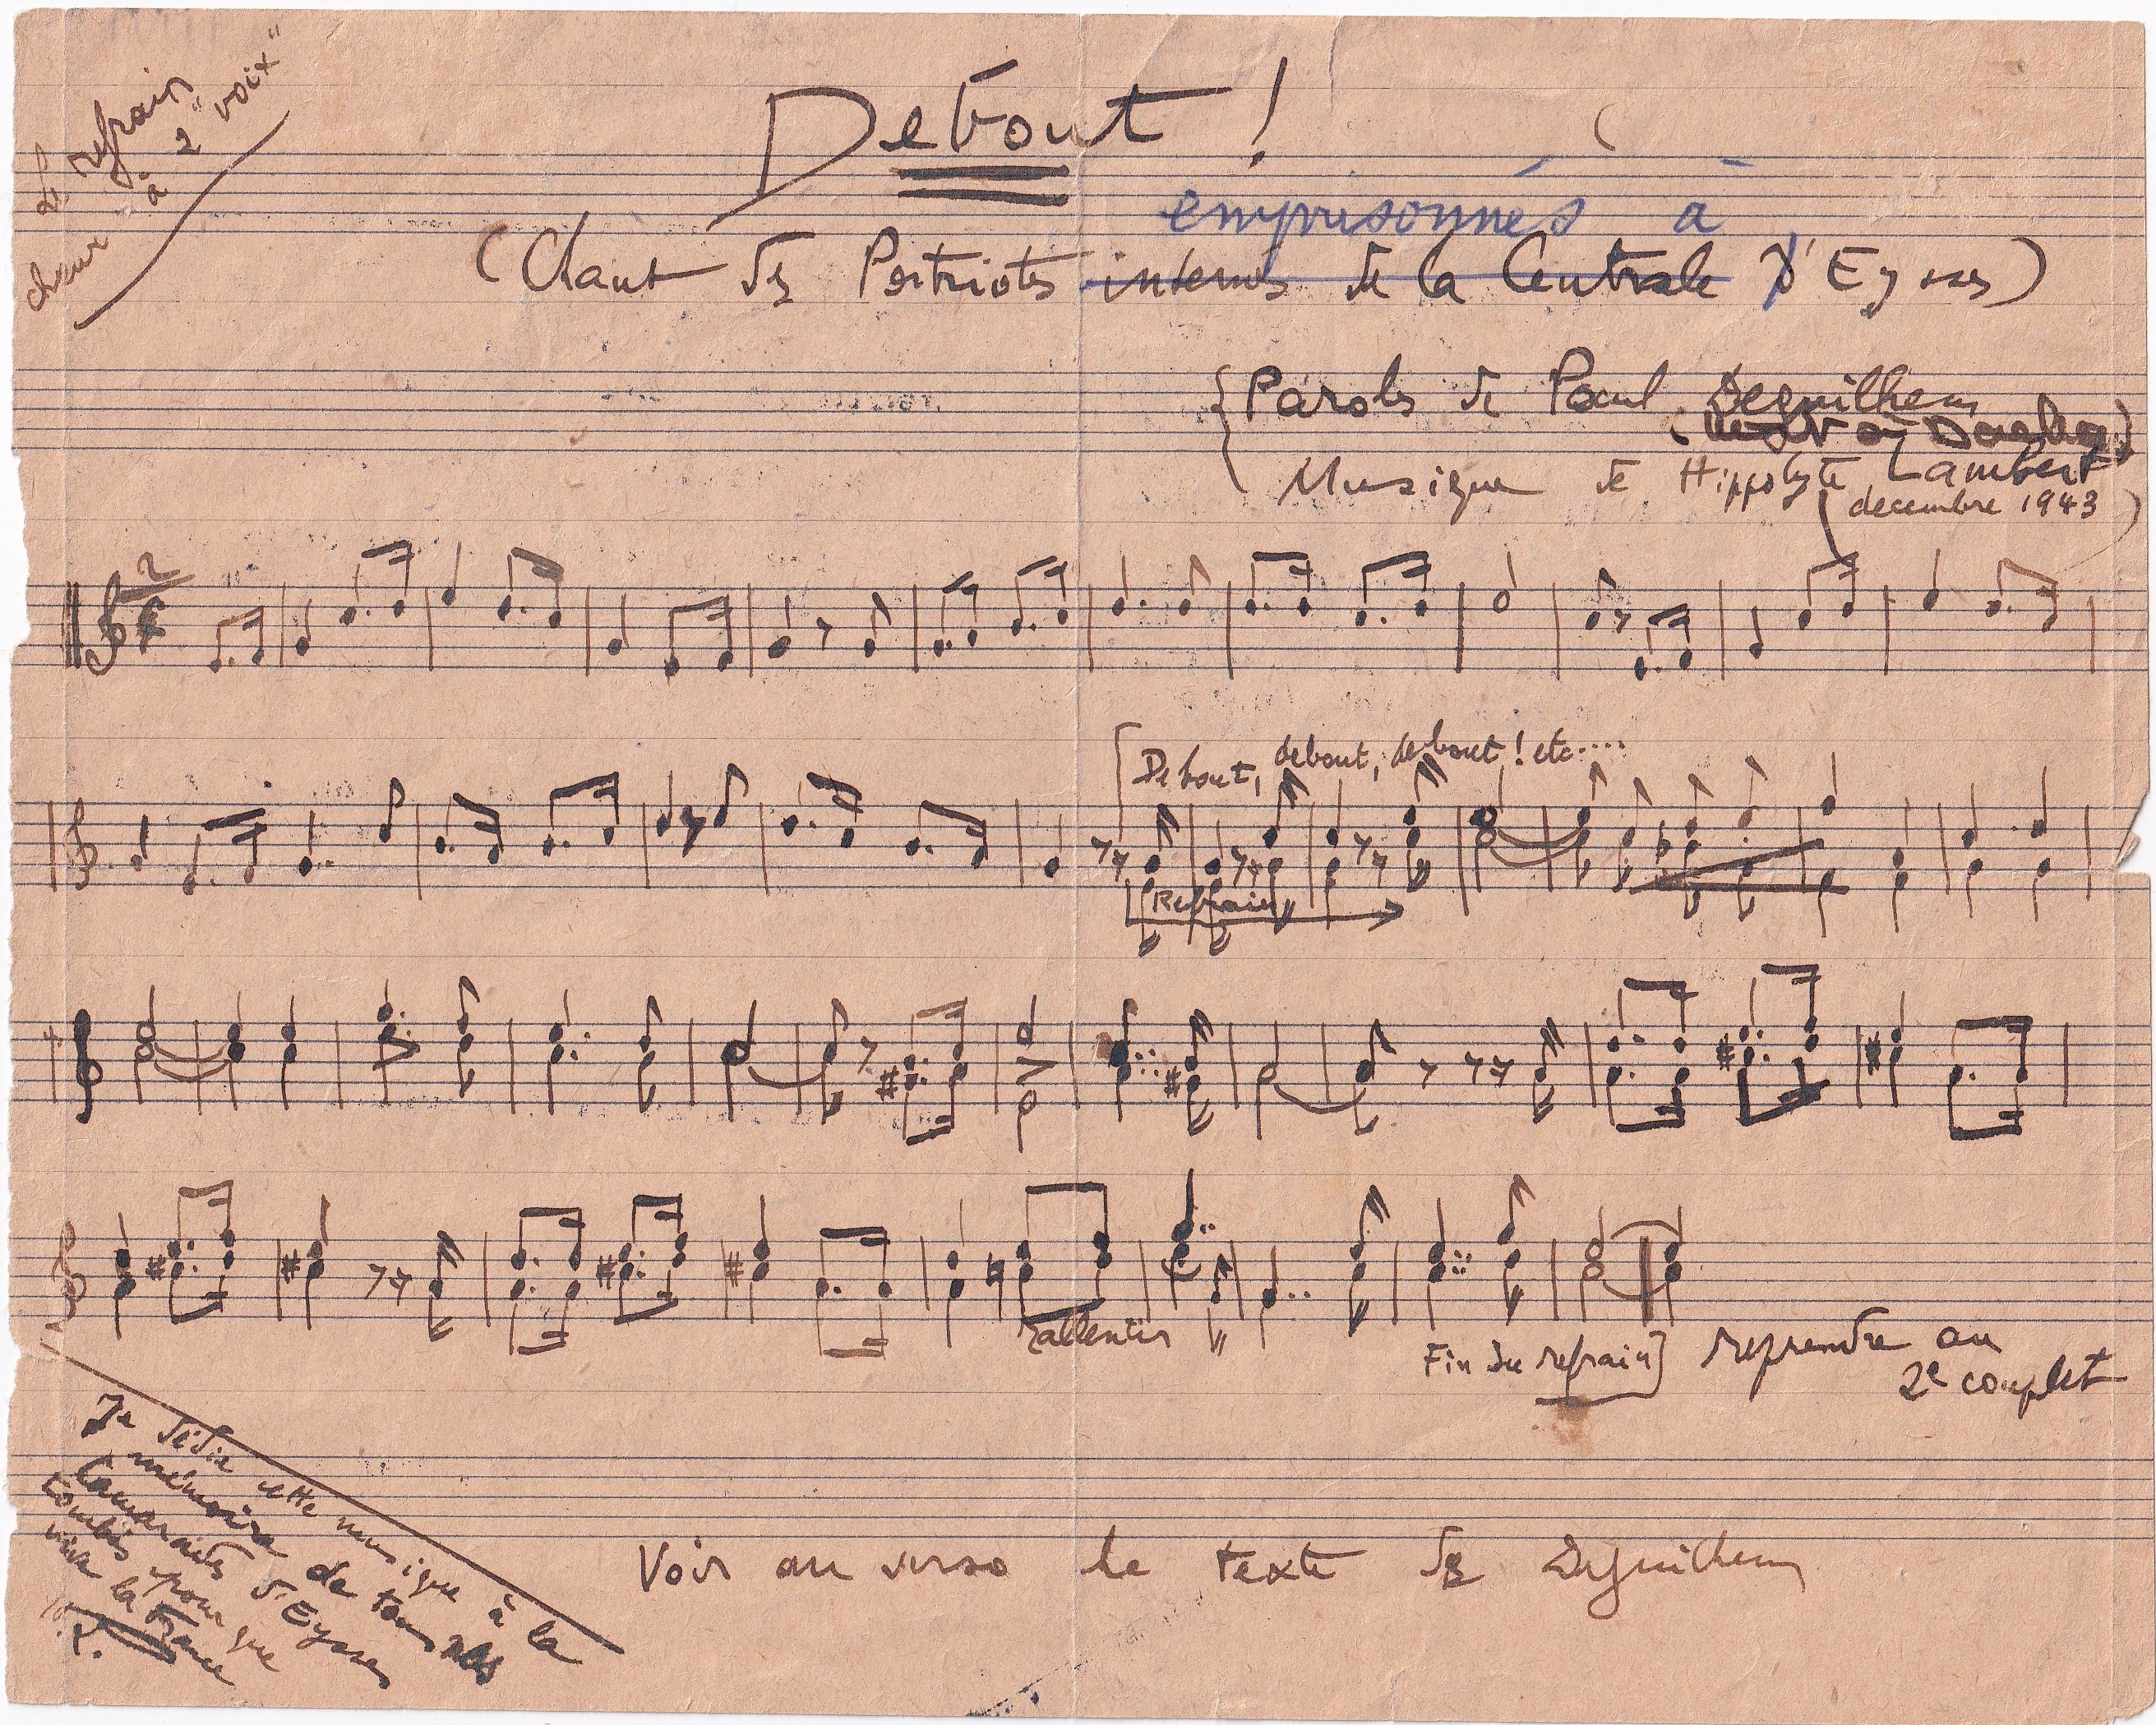 Le refrain
chœur à 2 "voix"
Debout !
emprisonnés à
(Chant des Patriotes internés de la Centrale d'Eysses)
Paroles de Paul Deguilhem
Musique de Hippolyte Lambert
(decembre 1943)
2
Debout, debout, debout ! etc....
Refrain
rallentir
Fin du refrain]
reprendre au
2e couplet
Je dédie cette musique à la
mémoire de tous nos
Camarades d'Eysses
tombés pour que
vive la France
Voir au verso le texte de Deguilhem